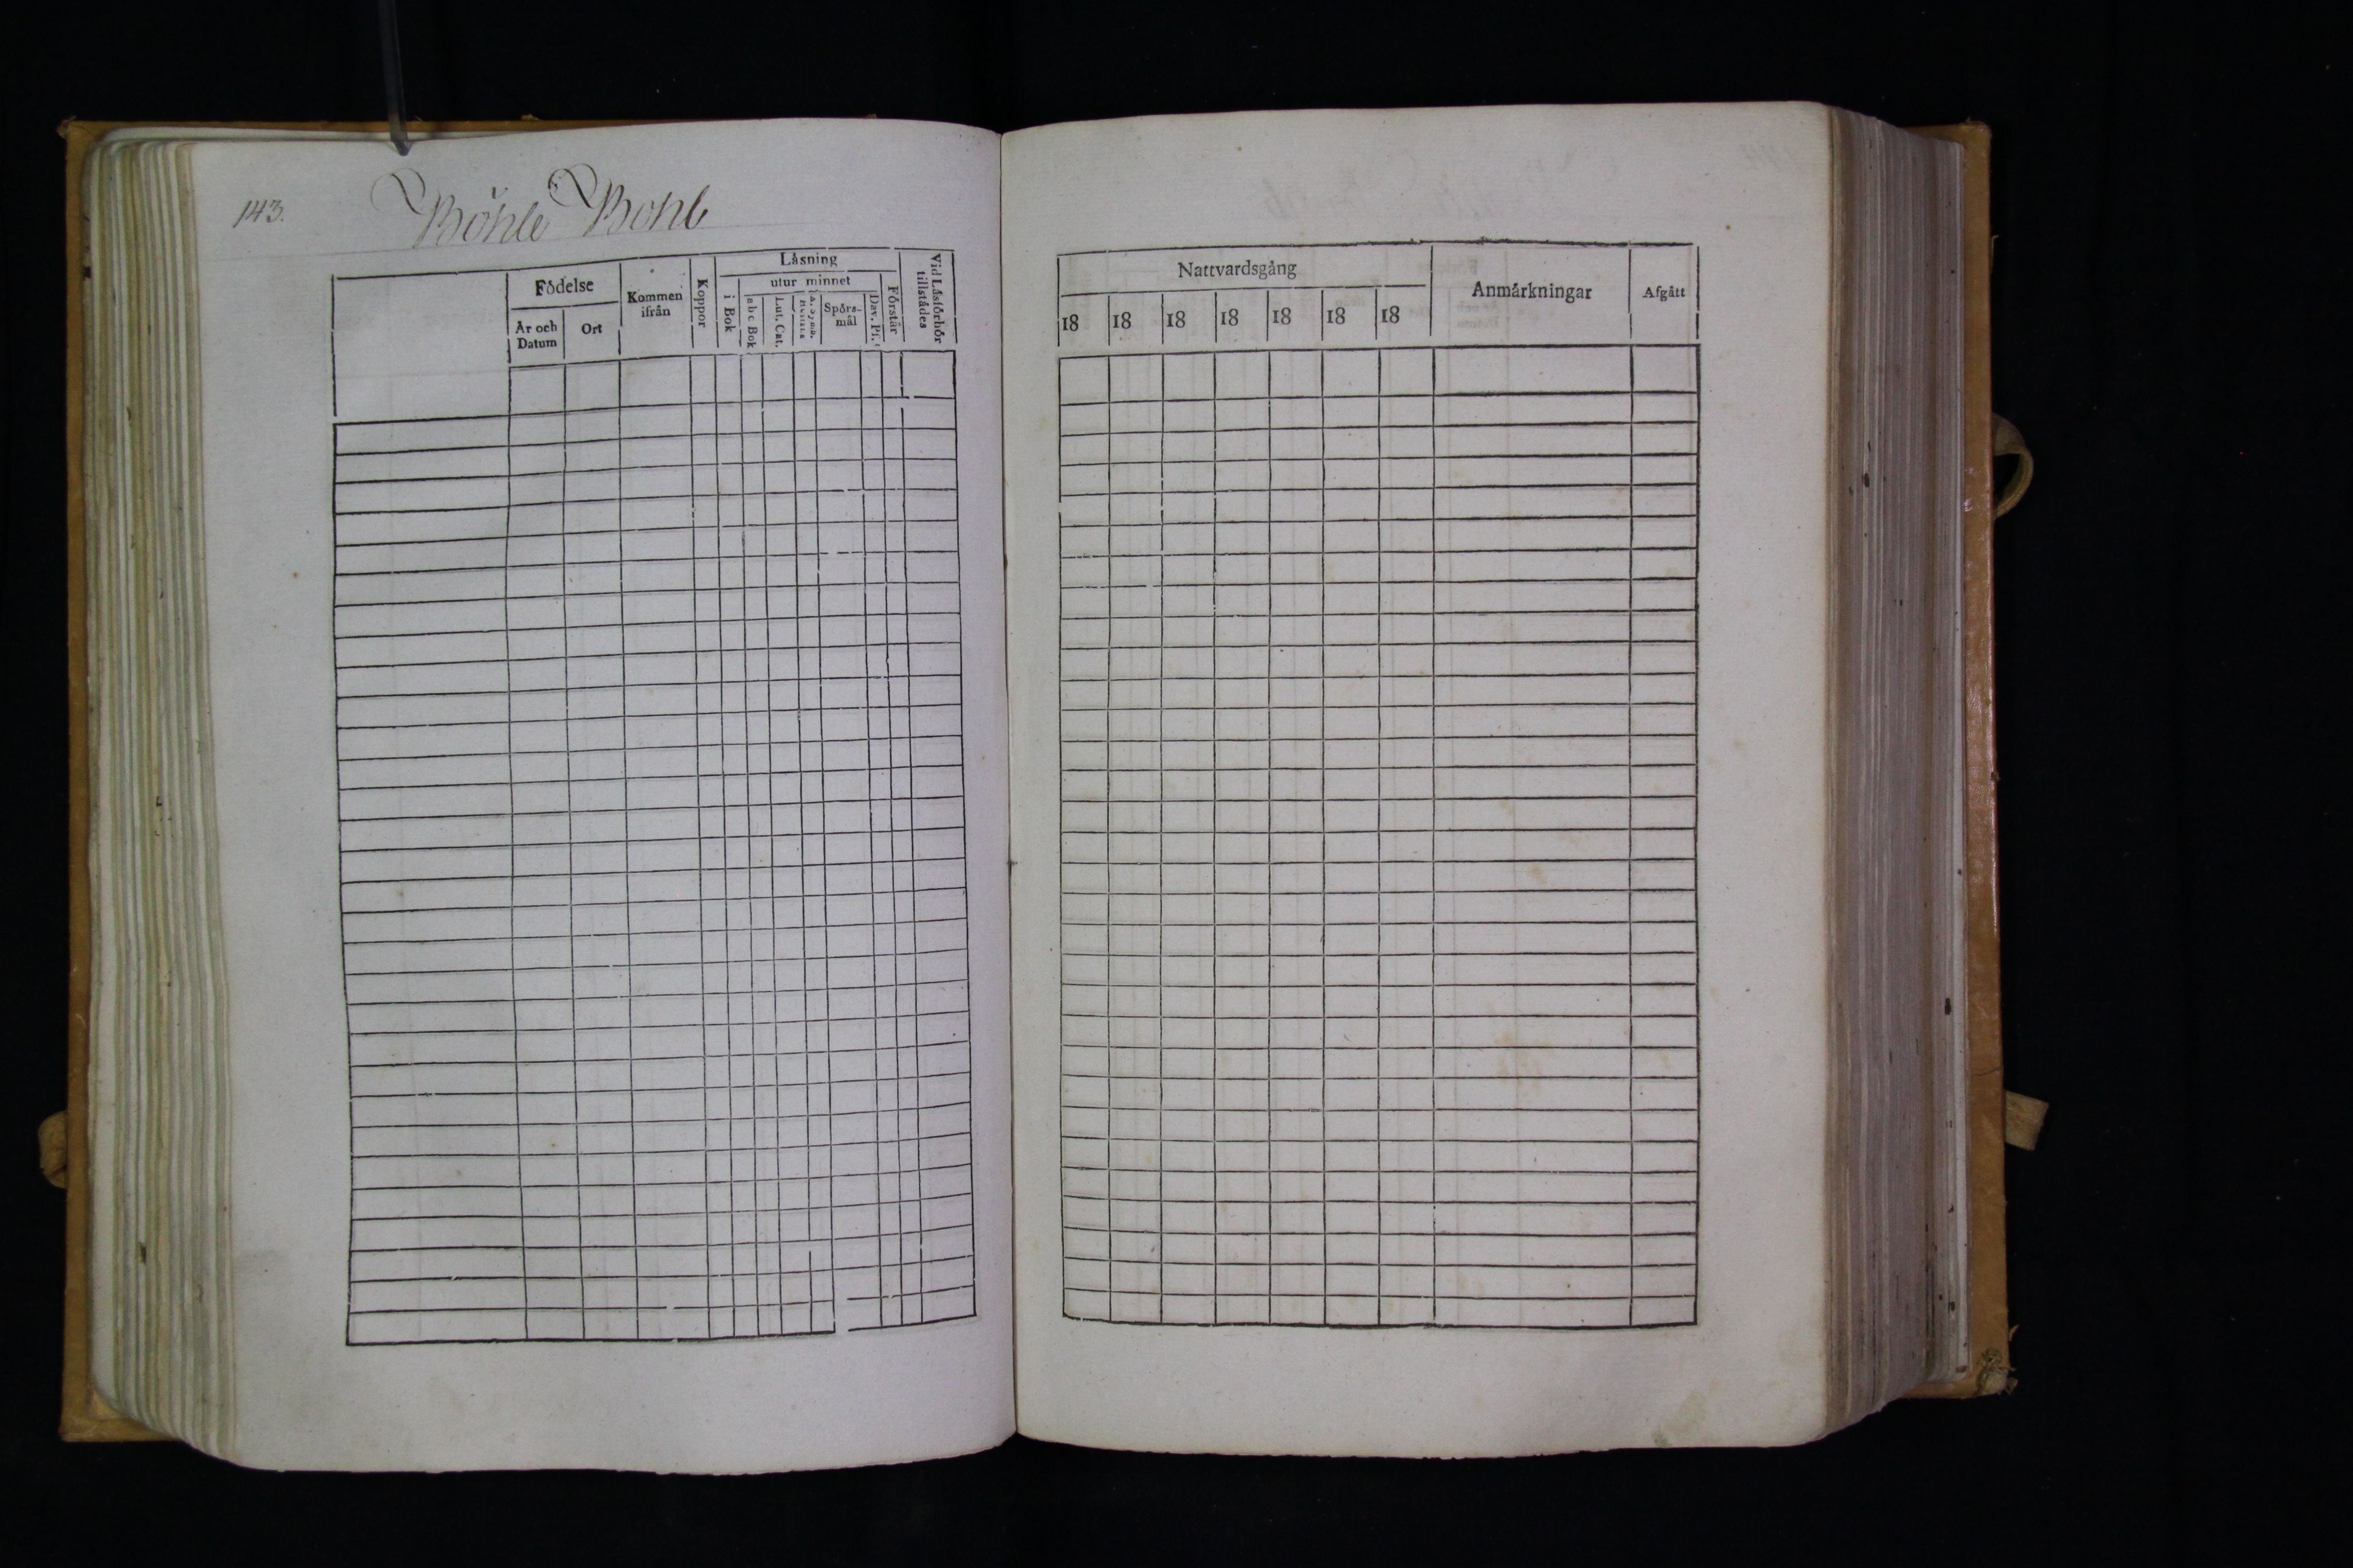 143.
Böhle Bohl
Födelse
År och Datum
Ort
Kommen ifrån
Koppor
Läsning
i Bok
utur minnet
abc Bok
Lut. Cat.
Spörs-mål
Dav. Ps.
Förstår
Vid Läsförhör tillstådes
Nattvardsgång
18 18 18 18 18 18 18
Anmärkningar
Afgått